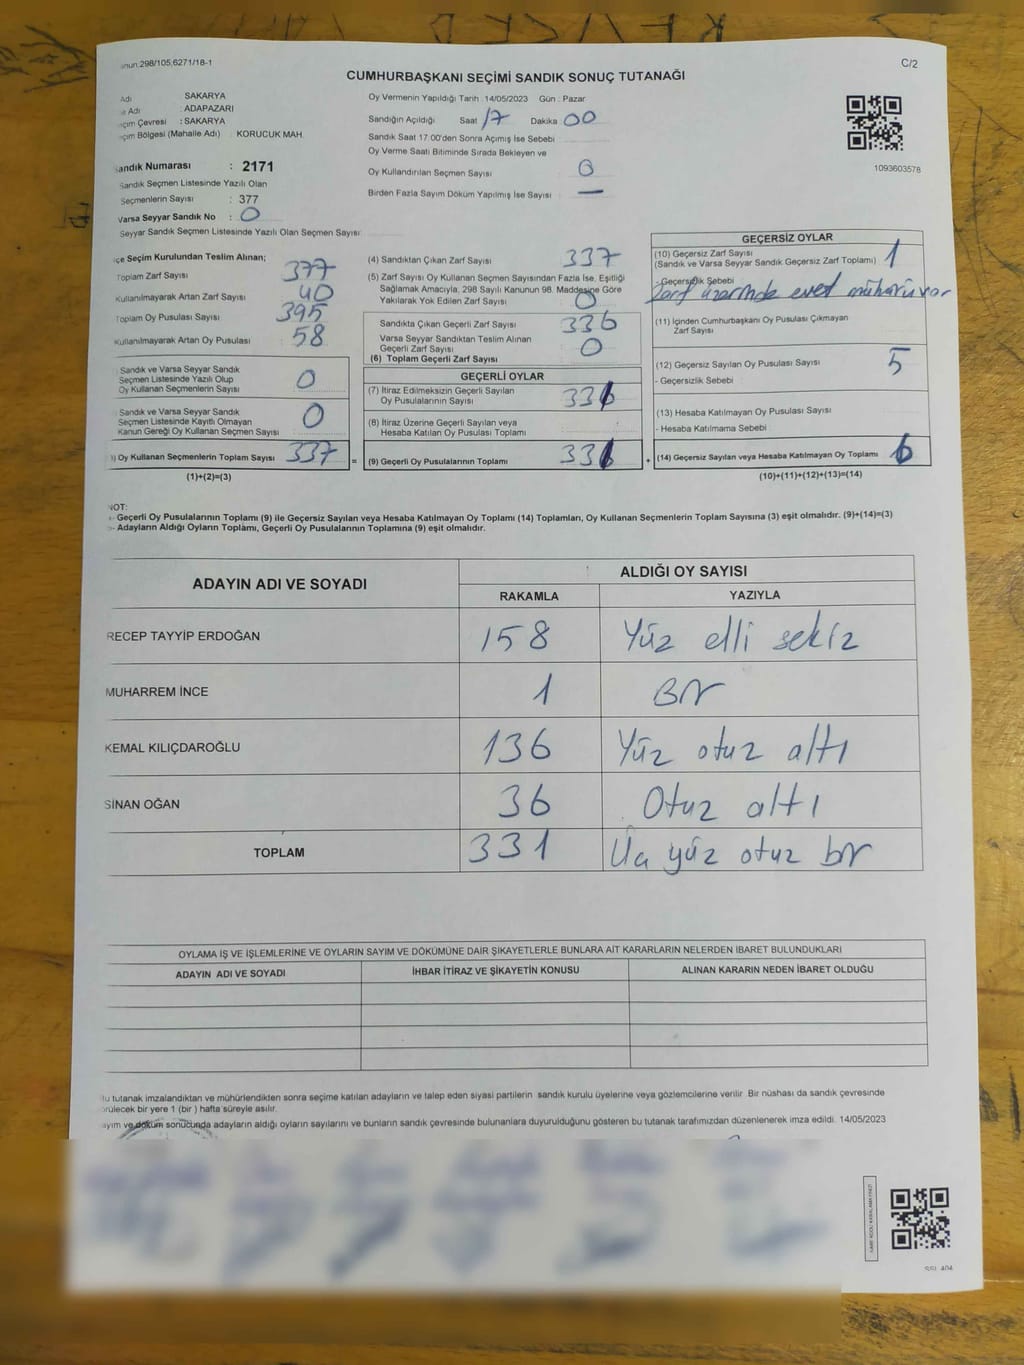 anun.298/105;6271/18-1
C/2
CUMHURBAŞKANI SEÇİMİ SANDIK SONUÇ TUTANAĞI
Adı SAKARYA
e Adı : ADAPAZARI
eçim Çevresi : SAKARYA
eçim Bölgesi (Mahalle Adı) : KORUCUK MAH.
Sandık Numarası : 2171
Sandık Seçmen Listesinde Yazılı Olan
Seçmenlerin Sayısı : 377
Varsa Seyyar Sandık No : 0
Seyyar Sandık Seçmen Listesinde Yazılı Olan Seçmen Sayısı
Oy Vermenin Yapıldığı Tarih :14/05/2023 Gün : Pazar
Sandığın Açıldığı Saat 17 Dakika 00
Sandık Saat 17:00'den Sonra Açımış İse Sebebi
Oy Verme Saati Bitiminde Sırada Bekleyen ve
Oy Kullandırılan Seçmen Sayısı 0
Birden Fazla Sayım Döküm Yapılmış İse Sayısı : —
1093603578
çe Seçim Kurulundan Teslim Alınan;
Toplam Zarf Sayısı 377
Kullanılmayarak Artan Zarf Sayısı 40
Toplam Oy Pusulası Sayısı 395
Kullanılmayarak Artan Oy Pusulası 58
Sandık ve Varsa Seyyar Sandık
Seçmen Listesinde Yazılı Olup
Oy Kullanan Seçmenlerin Sayısı 0
Sandık ve Varsa Seyyar Sandık
Seçmen Listesinde Kayıtlı Olmayan
Kanun Gereği Oy Kullanan Seçmen Sayısı 0
) Oy Kullanan Seçmenlerin Toplam Sayısı 337
(1)+(2)=(3)
=
(4) Sandıktan Çıkan Zarf Sayısı 337
(5) Zarf Sayısı Oy Kullanan Seçmen Sayısından Fazla İse, Eşitliği
Sağlamak Amacıyla, 298 Sayılı Kanunun 98. Maddesine Göre
Yakılarak Yok Edilen Zarf Sayısı 0
Sandıkta Çıkan Geçerli Zarf Sayısı 336
Varsa Seyyar Sandıktan Teslim Alınan
Geçerli Zarf Sayısı 0
(6) Toplam Geçerli Zarf Sayısı
GEÇERLİ OYLAR
(7) İtiraz Edilmeksizin Geçerli Sayılan
Oy Pusulalarının Sayısı 331
(8) İtiraz Üzerine Geçerli Sayılan veya
Hesaba Katılan Oy Pusulası Toplamı
(9) Geçerli Oy Pusulalarının Toplamı 331
+
GEÇERSİZ OYLAR
(10) Geçersiz Zarf Sayısı
(Sandık ve Varsa Seyyar Sandık Geçersiz Zarf Toplamı) 1
- Geçersizlik Sebebi
Zarf üzerinde evet mühürü var
(11) İçinden Cumhurbaşkanı Oy Pusulası Çıkmayan
Zarf Sayısı
(12) Geçersiz Sayılan Oy Pusulası Sayısı 5
- Geçersizlik Sebebi
(13) Hesaba Katılmayan Oy Pusulası Sayısı
- Hesaba Katılmama Sebebi
(14) Geçersiz Sayılan veya Hesaba Katılmayan Oy Toplamı 6
(10)+(11)+(12)+(13)=(14)
NOT:
- Geçerli Oy Pusulalarının Toplamı (9) ile Geçersiz Sayılan veya Hesaba Katılmayan Oy Toplamı (14) Toplamları, Oy Kullanan Seçmenlerin Toplam Sayısına (3) eşit olmalıdır. (9)+(14)=(3)
- Adayların Aldığı Oyların Toplamı, Geçerli Oy Pusulalarının Toplamına (9) eşit olmalıdır.
ADAYIN ADI VE SOYADI
ALDIĞI OY SAYISI
RAKAMLA YAZIYLA
RECEP TAYYİP ERDOĞAN 158 Yüz elli sekiz
MUHARREM İNCE 1 Bir
KEMAL KILIÇDAROĞLU 136 Yüz otuz altı
SİNAN OĞAN 36 Otuz altı
TOPLAM 331 Üç yüz otuz bir
OYLAMA İŞ VE İŞLEMLERİNE VE OYLARIN SAYIM VE DÖKÜMÜNE DAİR ŞİKAYETLERLE BUNLARA AİT KARARLARIN NELERDEN İBARET BULUNDUKLARI
ADAYIN ADI VE SOYADI İHBAR İTİRAZ VE ŞİKAYETİN KONUSU ALINAN KARARIN NEDEN İBARET OLDUĞU
u tutanak imzalandıktan ve mühürlendikten sonra seçime katılan adayların ve talep eden siyasi partilerin sandık kurulu üyelerine veya gözlemcilerine verilir. Bir nüshası da sandık çevresinde
örülecek bir yere 1 (bir) hafta süreyle asılır.
ayım ve döküm sonucunda adayların aldığı oyların sayılarını ve bunların sandık çevresinde bulunanlara duyurulduğunu gösteren bu tutanak tarafımızdan düzenlenerek imza edildi. 14/05/2023